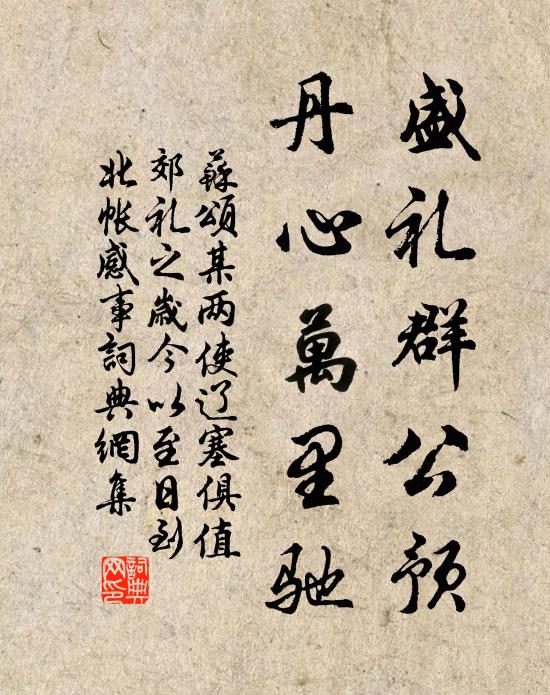 盛礼群公预
丹心萬里驰
蘇頌某两使辽塞俱值
郊礼之岁今以至日到
北帐感事詞典網集
詞典
网印